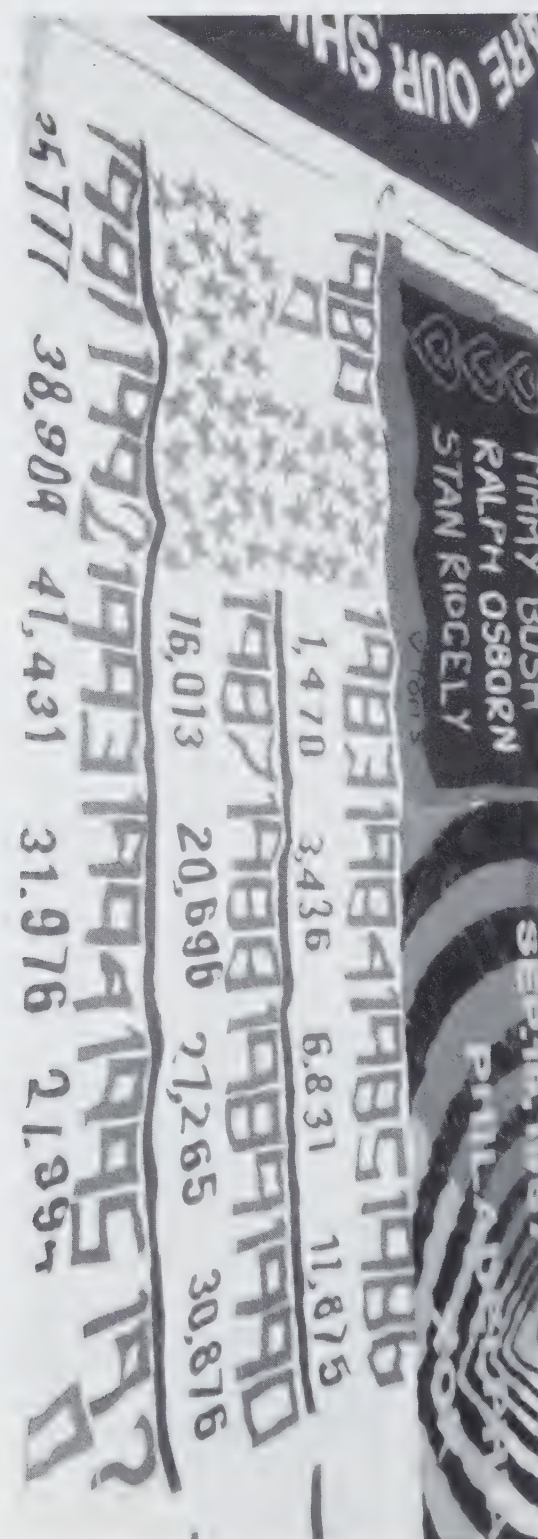 ARE OUR
BUSH
RALPH OSBORN
STAN RIDGELY
1980 1983 1984 1985 1986
0 1,470 3,436 6,831 11,875
1987 1988 1989 1990
16,013 20,696 27,265 30,876
1991 1992 1993 1994 1995 19?
38,904 41,431 31.976 0